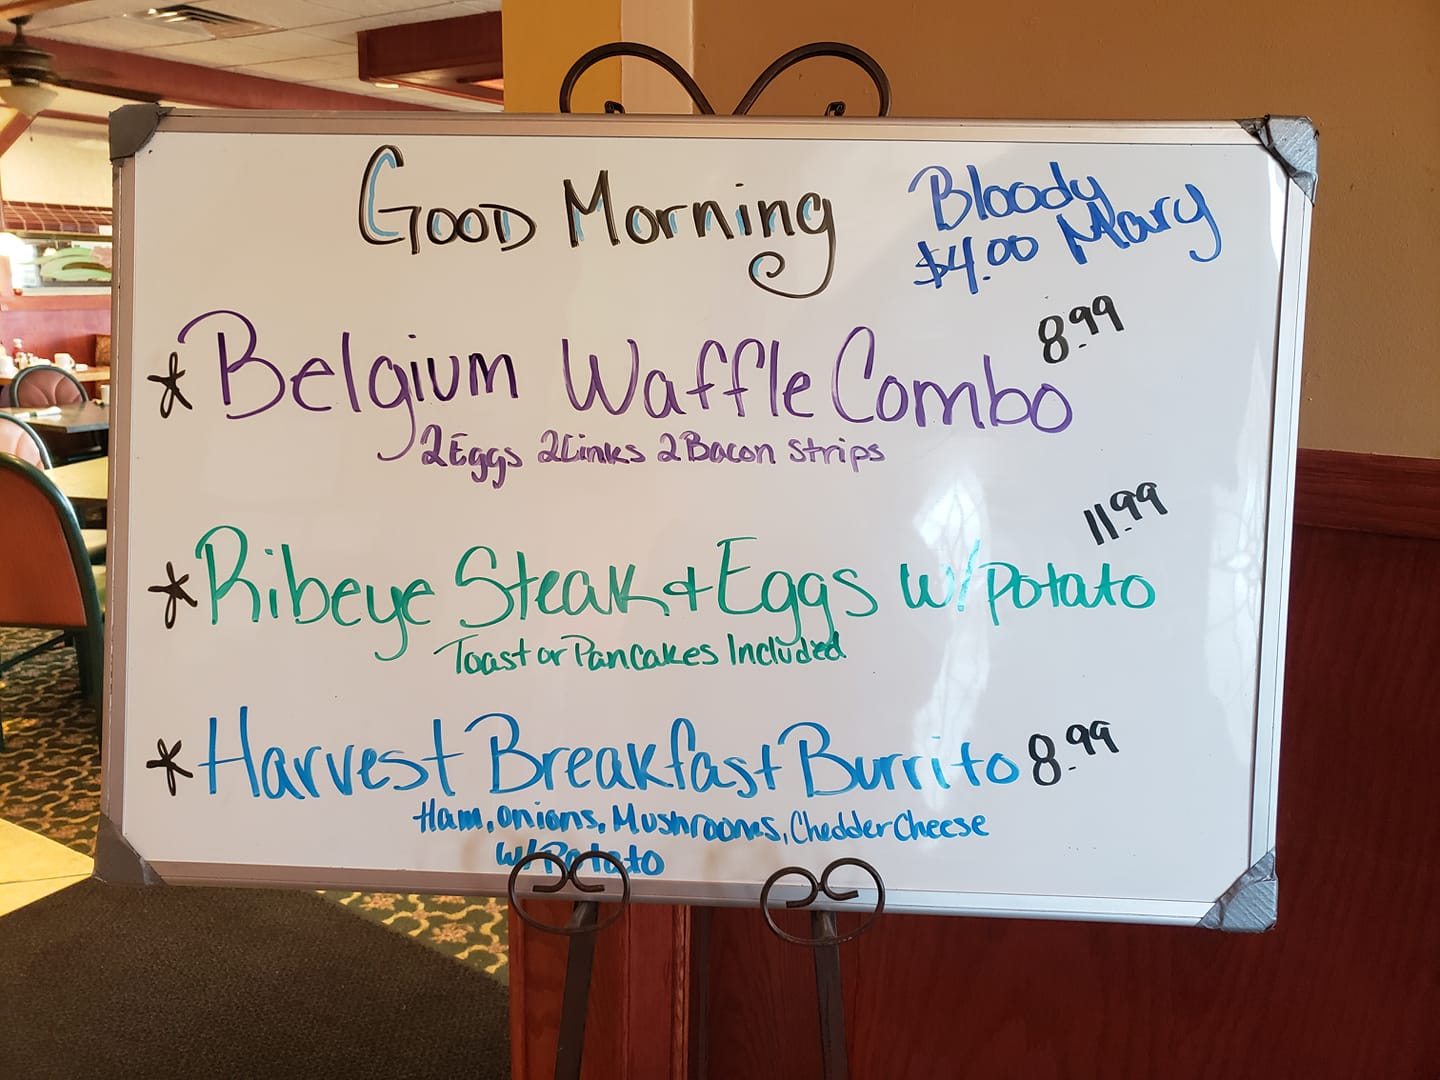 Good Morning
Bloody Mary
$4.00
* Belgium Waffle Combo 8.99
2 Eggs 2 Links 2 Bacon Strips
* Ribeye Steak + Eggs w/ Potato 11.99
Toast or Pancakes Included
* Harvest Breakfast Burrito 8.99
Ham, Onions, Mushrooms, Chedder Cheese
w/ Potato